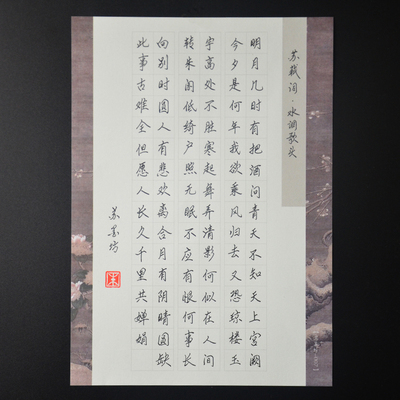 苏轼词·水调歌头
明月几时有把酒问青天不知天上宫阙
今夕是何年我欲乘风归去又恐琼楼玉
宇高处不胜寒起舞弄清影何似在人间
转朱阁低绮户照无眠不应有恨何事长
向别时圆人有悲欢离合月有阴晴圆缺
此事古难全但愿人长久千里共婵娟
苏墨坊